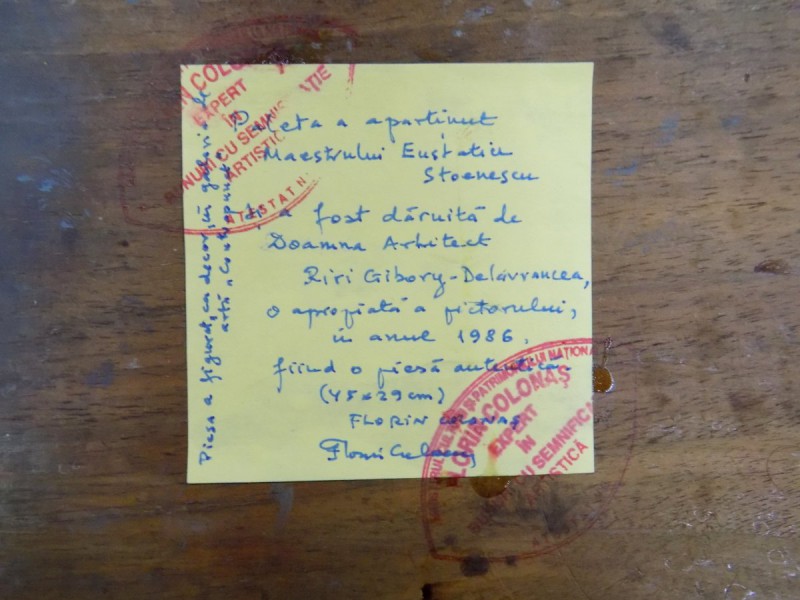 Paleta a aparținut
Maestrului Eustatiu
Stoenescu
și a fost dăruită de
Doamna Arhitect
Riri Gibory-Delavrancea,
o apropiată a pictorului,
în anul 1986,
fiind o piesă autentică.
(45x29cm)
FLORIN COLONAȘ
Florin Colonaș
Piesa a figurat, ca decor, în galeria de
artă „Contrapunct”
COLO
EXPERT
ÎN
BUNURI CU SEMNIFICAȚIE
ARTISTIC
ATESTAT N
ȘI PATRIMONIULUI NAȚIONAL
FLORIN COLONAȘ
EXPERT
ÎN
BUNURI CU SEMNIFICA
ARTISTICĂ